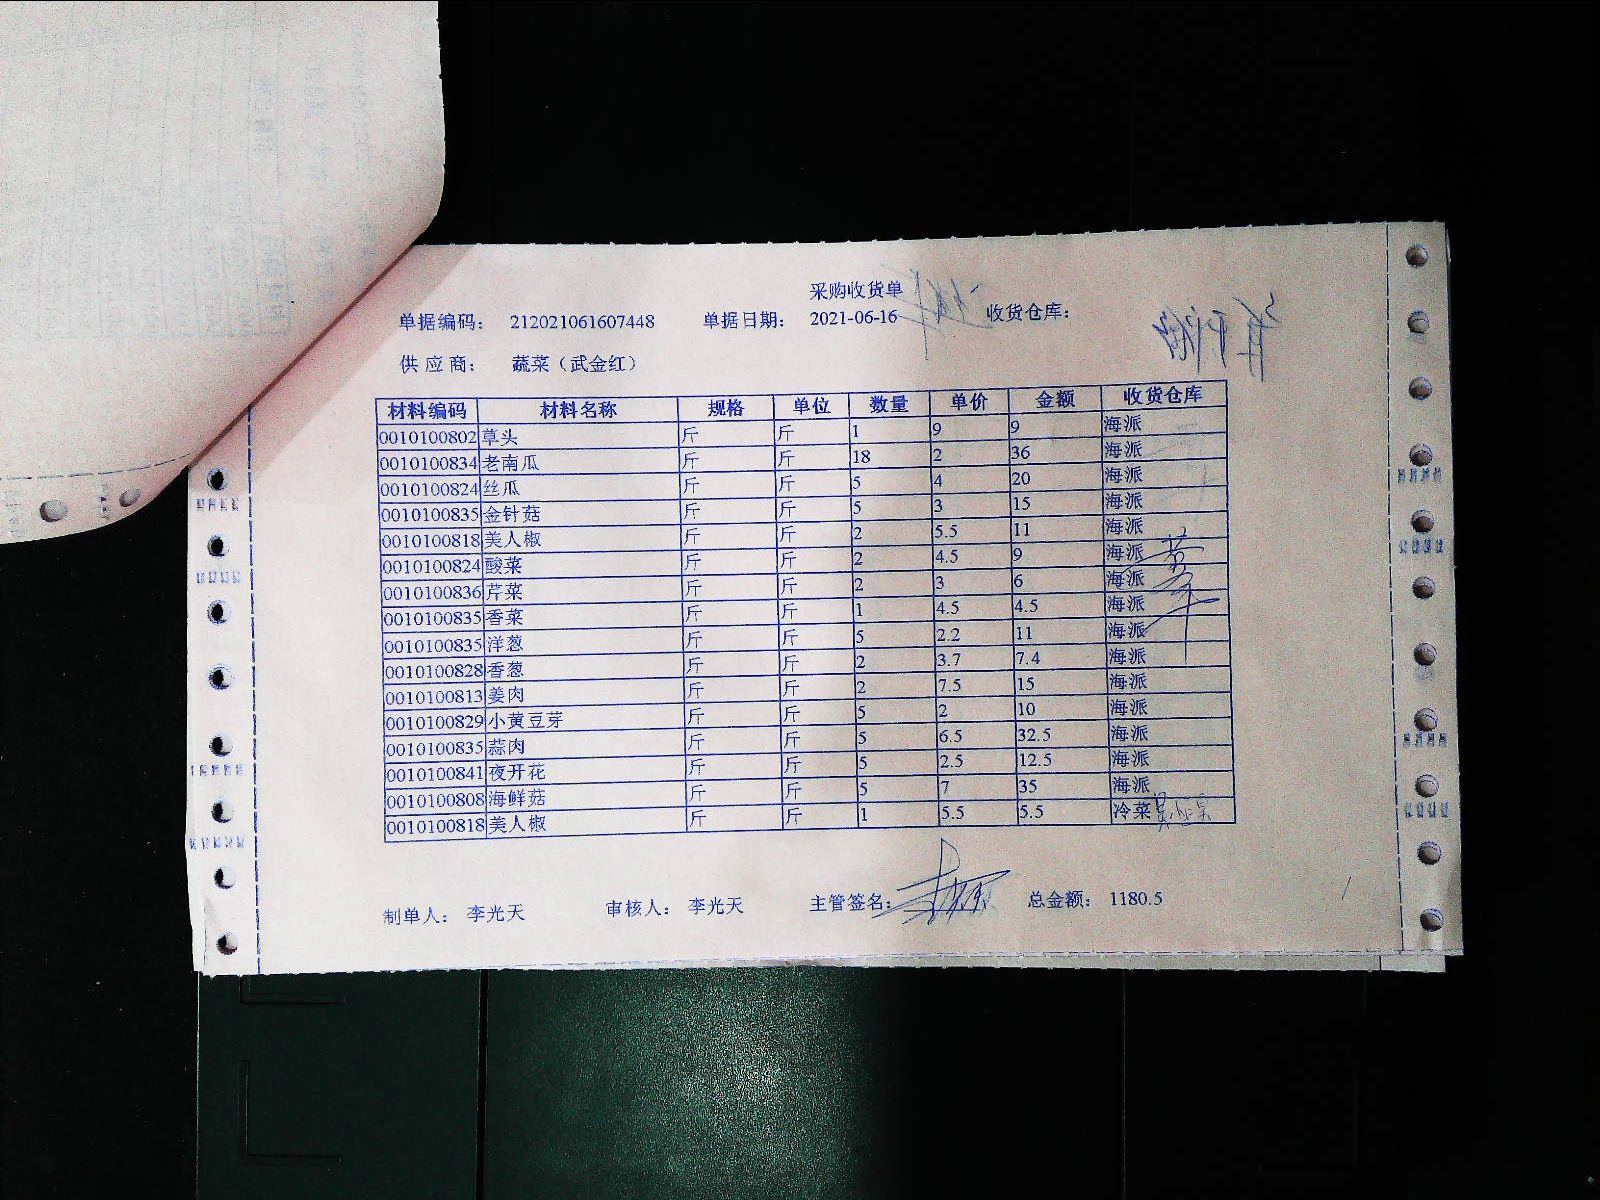 采购收货单
单据编码： 212021061607448 单据日期： 2021-06-16 收货仓库：
供 应 商： 蔬菜（武金红）
材料编码 材料名称 规格 单位 数量 单价 金额 收货仓库
0010100802 草头 斤 斤 1 9 9 海派
0010100834 老南瓜 斤 斤 18 2 36 海派
0010100824 丝瓜 斤 斤 5 4 20 海派
0010100835 金针菇 斤 斤 5 3 15 海派
0010100818 美人椒 斤 斤 2 5.5 11 海派
0010100824 酸菜 斤 斤 2 4.5 9 海派
0010100836 芹菜 斤 斤 2 3 6 海派
0010100835 香菜 斤 斤 1 4.5 4.5 海派
0010100835 洋葱 斤 斤 5 2.2 11 海派
0010100828 香葱 斤 斤 2 3.7 7.4 海派
0010100813 姜肉 斤 斤 2 7.5 15 海派
0010100829 小黄豆芽 斤 斤 5 2 10 海派
0010100835 蒜肉 斤 斤 5 6.5 32.5 海派
0010100841 夜开花 斤 斤 5 2.5 12.5 海派
0010100808 海鲜菇 斤 斤 5 7 35 海派
0010100818 美人椒 斤 斤 1 5.5 5.5 冷菜
制单人： 李光天 审核人： 李光天 主管签名： 总金额： 1180.5